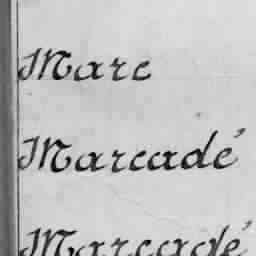 Marc
Marcadé
Marcadé